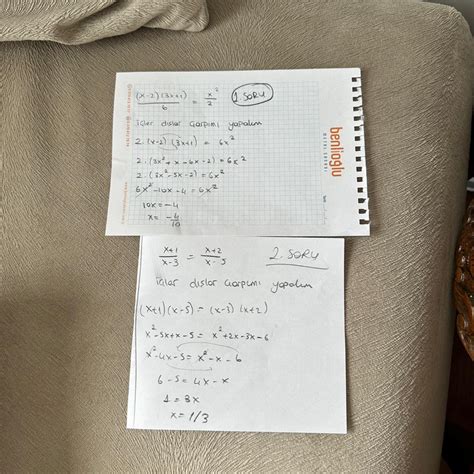 (x-2)(3x+1)/6 = x²/2 1. SORU
içler dışlar çarpımı yapalım
2.(x-2)(3x+1) = 6x²
2.(3x²+x-6x-2) = 6x²
2.(3x²-5x-2) = 6x²
6x²-10x-4 = 6x²
10x = -4
x = -4/10
benlioglu
METAL SANAYİ
x+1/x-3 = x+2/x-5 2. SORU
içler dışlar çarpımı yapalım
(x+1)(x-5) = (x-3)(x+2)
x²-5x+x-5 = x²+2x-3x-6
x²-4x-5 = x²-x-6
6-5 = 4x-x
1 = 3x
x = 1/3